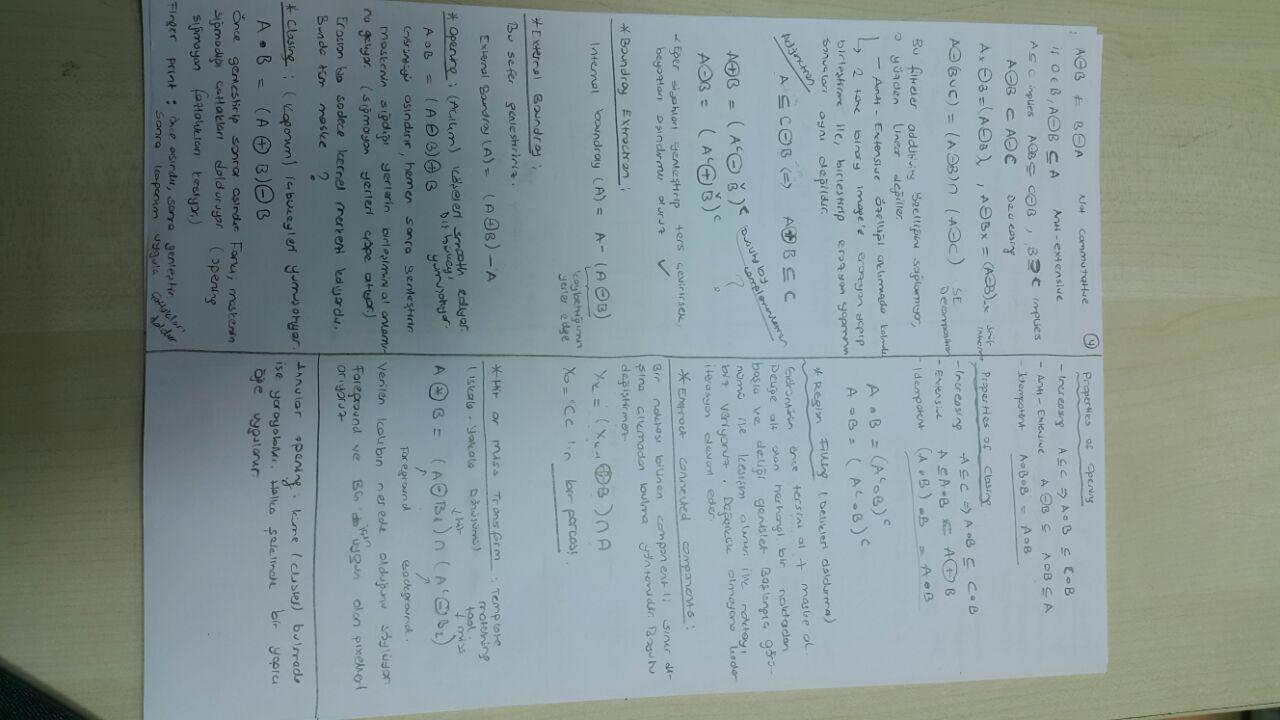 4
A⊖B ≠ B⊖A Not commutative
if 0∈B, A⊖B ⊆ A Anti-extensive
A ⊆ C implies A⊖B ⊆ C⊖B, B ⊇ C implies
A⊖B ⊂ A⊖C Decreasing
Ax ⊖B = (A⊖B)x, A⊖Bx = (A⊖B)-x
A⊖(B∪C) = (A⊖B)∩(A⊖C) SE
Decomposition
Bu filtreler additivity özelliğini sağlamıyor,
o yüzden linear değiller.
— Anti-Extensive özelliği aklımızda
↳ 2 tane binary image'e erozyon yapıp
birleştirme ile, birleştirip erozyon yapmanın
sonuçları aynı değildir.
Adjunction
A ⊆ C⊖B <=> A⊕B ⊆ C
Duality by
complementation
A⊕B = (Aᶜ⊖B̌)ᶜ
?
A⊖B = (Aᶜ⊕B̌)ᶜ
Eğer siyahları genleştirip ters çevirirsek,
beyazları aşındırmış oluruz ✓
* Boundray Extraction :
Internal boundray (A) = A - (A⊖B)
kaybettiğimiz
yerler edge
* External Boundray :
Bu sefer genleştiririz.
External Boundray (A) = (A⊕B) - A
* Opening : (Açılım) köşeleri smooth ediyor.
Dış bükeyi
yumuşatıyor.
A∘B = (A⊖B)⊕B
Görüntüyü aşındırır, hemen sonra genleştirir
maskenin sığdığı yerlerin birleşimini al anlamı-
na geliyor. (sığmayan yerleri çöpe atıyor.)
Erosion da sadece kernel merkezi kalıyordu.
Bunda tüm maske ?
* Closing : (Kapanım) içbükeyleri yumuşatıyor.
A • B = (A⊕B)⊖B
Önce genleştirip sonra aşındır. Farkı, maskenin
sığmadığı çatlakları dolduruyor. (opening
sığmayan çatlakları kesiyor.)
Finger print : önce aşındır, sonra genleştir
sonra kapanım uygula. Çatlakları
doldur
Properties of Opening
- Increasing A⊆C ⇒ A∘B ⊆ C∘B
- Anti-Extensive A⊖B ⊆ A∘B ⊆ A
- Idempotent A∘B∘B = A∘B
Properties of Closing
- Increasing A⊆C ⇒ A•B ⊆ C•B
- Extensive A⊆A•B ⊆ A⊕B
- Idempotent (A•B)•B = A•B
A•B = (Aᶜ∘B)ᶜ
A∘B = (Aᶜ•B)ᶜ
* Region Filling (Delikleri doldurma)
Görüntünün önce tersini al + maske al.
Deliğe ait olan herhangi bir noktadan
başla ve deliği genişlet Başlangıç görü-
nümü ile kesişim alınır. ilk noktayı
biz veriyoruz. Değişiklik olmayana kadar
iterasyon devam eder.
* Extract connected components :
Bir noktası bilinen component'i sınır dı-
şına çıkmadan bulma yöntemidir. Boyutu
değiştirmez
Xₖ = (Xₖ₋₁⊕B)∩A
X₀ = 'CC 'in bir parçası.
* Hit or Miss Transform : Template
matching
tool.
(Iskala - Yakala Dönüşümü)
↓ hit
↓ miss
A ⊛ B = (A⊖B₁) ∩ (Aᶜ⊖B₂)
Foreground Background.
Verilen kalıbın nerede olduğunu söylüyor.
Foreground ve BG için uygun olan pixelleri
arıyoruz
Annular opening. küme (cluster) bulmada
işe yarayabilir. Halka şeklinde bir yapıcı
öğe uygulanır.